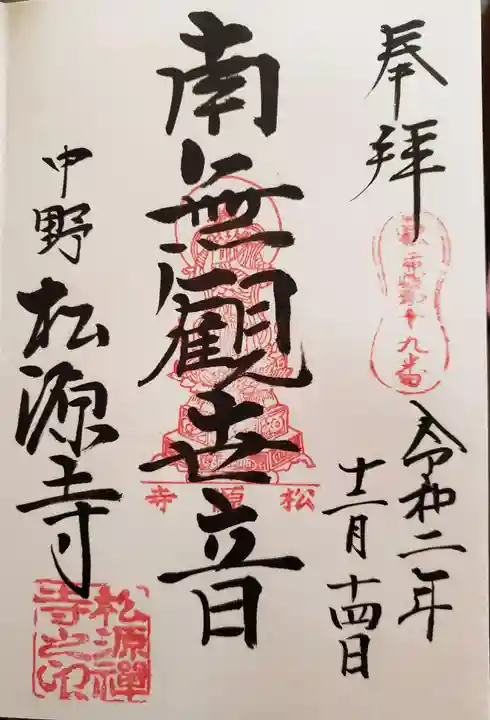 奉拝
第十九番
令和二年
十二月十四日
南無観世音
寺源松
中野 松源寺
松源禅寺之印